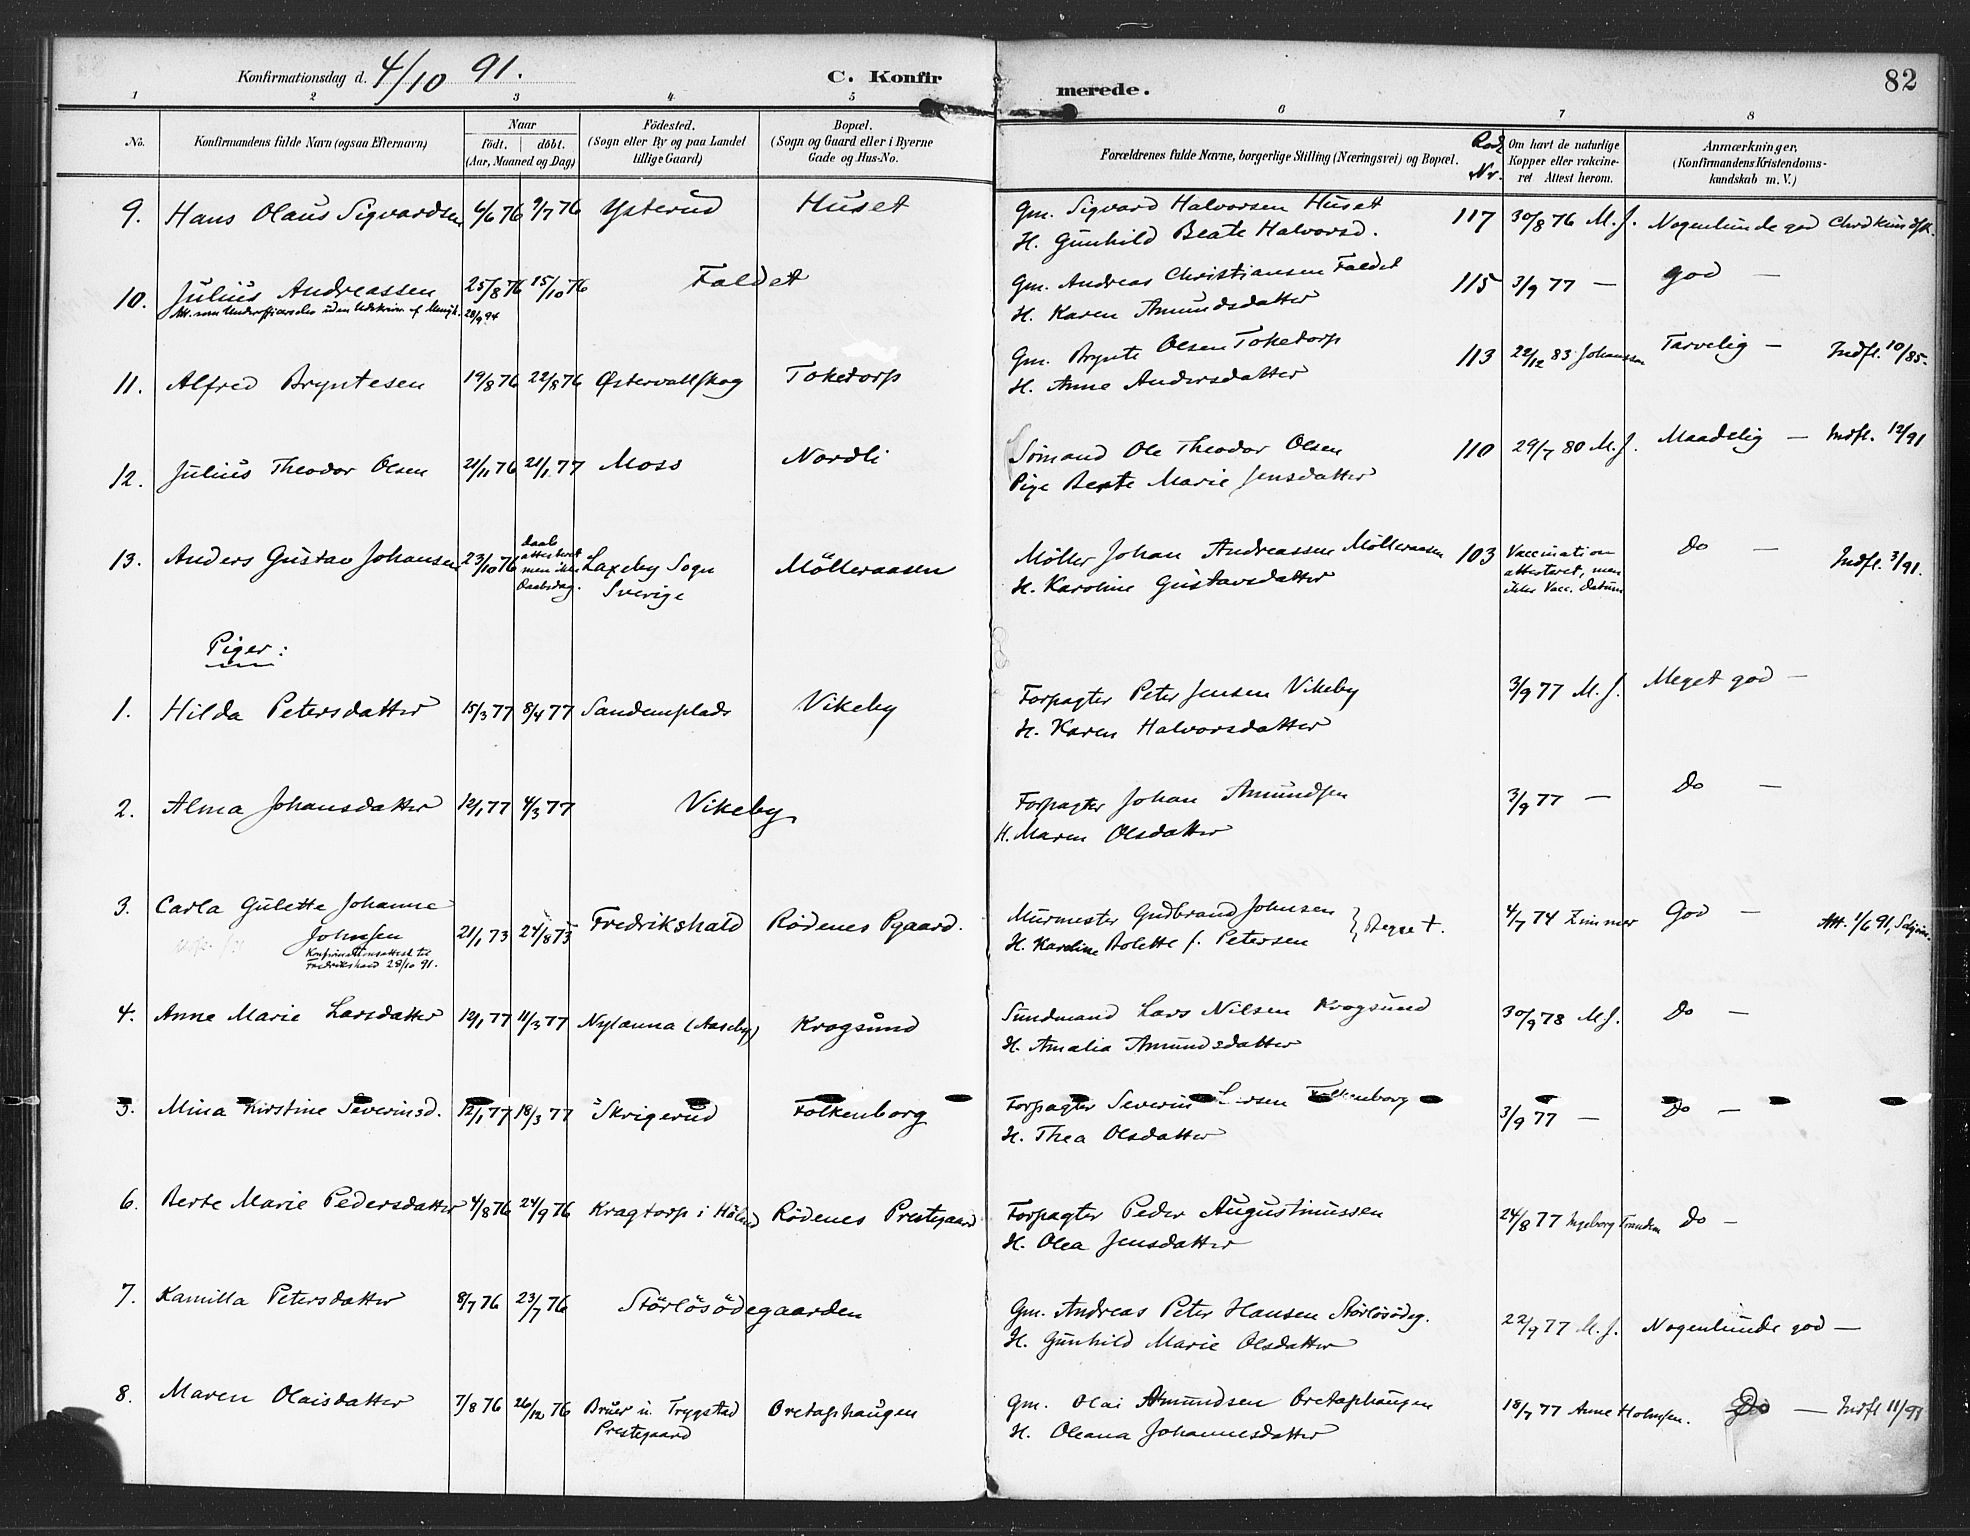 Konfirmationsdag d. 4/10 91. C. Konfirmerede. 82
1 2 3 4 5 6 7 8
No. Konfirmandens fulde Navn (ogsaa Efternavn) Naar födt. döbt. (Aar, Maaned og Dag) Födested. (Sogn eller By og paa Landet tillige Gaard) Bopæl. (Sogn og Gaard eller i Byerne Gade og Hus-No. Forældrenes fulde Navne, borgerlige Stilling (Næringsvei) og Bopæl. Nr. Om havt de naturlige Kopper eller vakcineret Attest herom. Anmærkninger, (Konfirmandens Kristendomskundskab m. V.)
9. Hans Olaus Sigvardsen 6/6 76 9/7 76 Ysterud Huset Gm. Sigvard Halvorsen Huset 117 30/8 76 M. J. Nogenlunde god
H. Gunhild Beate Halvorsd.
10. Julius Andreassen 25/8 76 15/10 76 Faldet Gm. Andreas Christiansen Faldet 115 3/9 77 — god —
28/9 94
H. Karen Amundsdatter
11. Alfred Bryntesen 19/8 76 22/8 76 Østervallskog Toketorp Gm. Brynte Olsen Toketorp 113 22/12 83 Johansson Tarvelig — Indfl. 10/85.
H. Anne Andersdatter
12. Julius Theodor Olsen 21/11 76 21/1 77 Moss Nordli Sömand Ole Theodor Olsen 110 29/7 80 M. J. Maadelig — Indfl. 12/91
Pige Berte Marie Jensdatter
13. Anders Gustav Johansen 23/10 76 Daab attesteret men ikke Daabsdag. Laxeby Sogn Sverige Mölleraasen Möller Johan Andreassen Mölleraasen 103 Vaccination attesteret, men ikke Vacc. datum Do — Indfl. 3/91.
H. Karoline Gustavsdatter
Piger:
1. Hilda Petersdatter 15/3 77 8/4 77 Sandemplads Vikeby Forpagter Peter Jensen Vikeby 3/9 77 M. J. Meget god —
H. Karen Halvorsdatter
2. Alma Johansdatter 12/1 77 4/3 77 Vikeby Forpagter Johan Amundsen 3/9 77 — Do —
H. Maren Olsdatter
3. Carla Gulette Johanne Johnsen 21/1 73 24/8 73 Fredrikshald Rödenes Pgaard. Murmester Gudbrand Johnsen } Begge †. 4/7 74 Zimmer God — Att. 1/6 91,
Konfirmationsattest til Fredrikshald 28/10 91.
H. Karoline Bolette f. Petersen
4. Anne Marie Larsdatter 12/1 77 11/3 77 Nylanna (Aaseby) Krogsund Sundmand Lars Nilsen Krogsund 30/9 78 M. J. Do —
H. Amalia Amundsdatter
5. Mina Kirstine Severinsd. 12/1 77 18/3 77 Skrigerud Folkenborg Forpagter Severin Larsen Folkenborg 3/9 77 — Do —
H. Thea Olsdatter
6. Berte Marie Pedersdatter 4/8 76 24/9 76 Kragtorp i Höland Rödenes Prestegaard Forpagter Peder Augustinussen 24/8 77 Ingeborg Trandem Do —
H. Olea Jensdatter
7. Kamilla Petersdatter 8/7 76 23/7 76 Störlösödegaarden Gm. Andreas Peter Hansen Störlösödeg. 22/9 77 M. J. Nogenlunde god —
H. Gunhild Marie Olsdatter
8. Maren Olaisdatter 7/8 76 26/12 76 Bruer u. Trygstad Prestegaard Bretaphaugen Gm. Olai Amundsen Bretaphaugen 18/7 77 Anne Holmsen. Do — Indfl 11/91
H. Oleana Johannesdatter